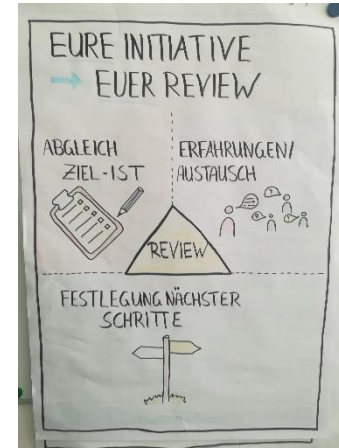 EURE INITIATIVE
→ EUER REVIEW
ABGLEICH
ZIEL-IST
ERFAHRUNGEN/
AUSTAUSCH
REVIEW
FESTLEGUNG NÄCHSTER
SCHRITTE